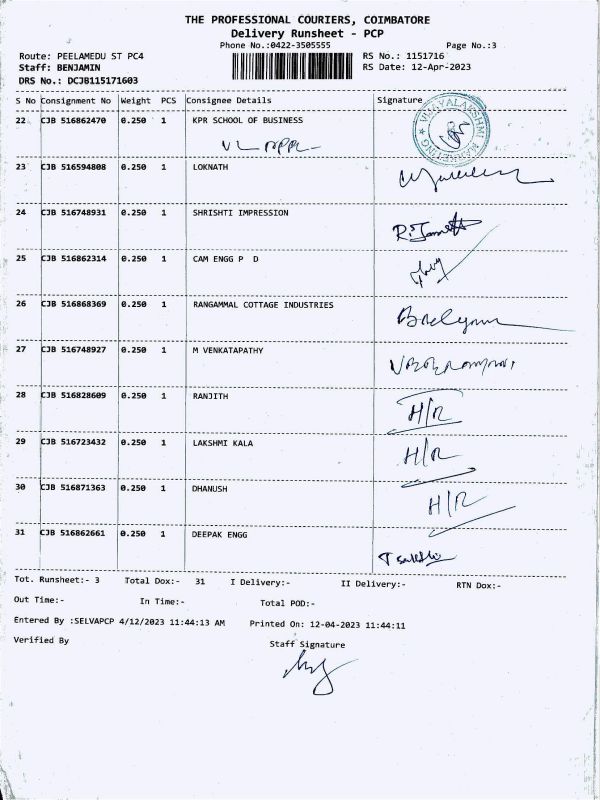 THE PROFESSIONAL COURIERS, COIMBATORE
Delivery Runsheet - PCP
Phone No.:0422-3505555 Page No.:3
Route: PEELAMEDU ST PC4 RS No.: 1151716
Staff: BENJAMIN RS Date: 12-Apr-2023
DRS No.: DCJB115171603
S No Consignment No Weight PCS Consignee Details Signature
22 CJB 516862470 0.250 1 KPR SCHOOL OF BUSINESS
VIJAYALAKSHMI MARKETING
23 CJB 516594808 0.250 1 LOKNATH
24 CJB 516748931 0.250 1 SHRISHTI IMPRESSION
25 CJB 516862314 0.250 1 CAM ENGG P D
26 CJB 516868369 0.250 1 RANGAMMAL COTTAGE INDUSTRIES
27 CJB 516748927 0.250 1 M VENKATAPATHY
28 CJB 516828609 0.250 1 RANJITH H/R
29 CJB 516723432 0.250 1 LAKSHMI KALA H/R
30 CJB 516871363 0.250 1 DHANUSH H/R
31 CJB 516862661 0.250 1 DEEPAK ENGG
Tot. Runsheet:- 3 Total Dox:- 31 I Delivery:- II Delivery:- RTN Dox:-
Out Time:- In Time:- Total POD:-
Entered By :SELVAPCP 4/12/2023 11:44:13 AM Printed On: 12-04-2023 11:44:11
Verified By Staff Signature